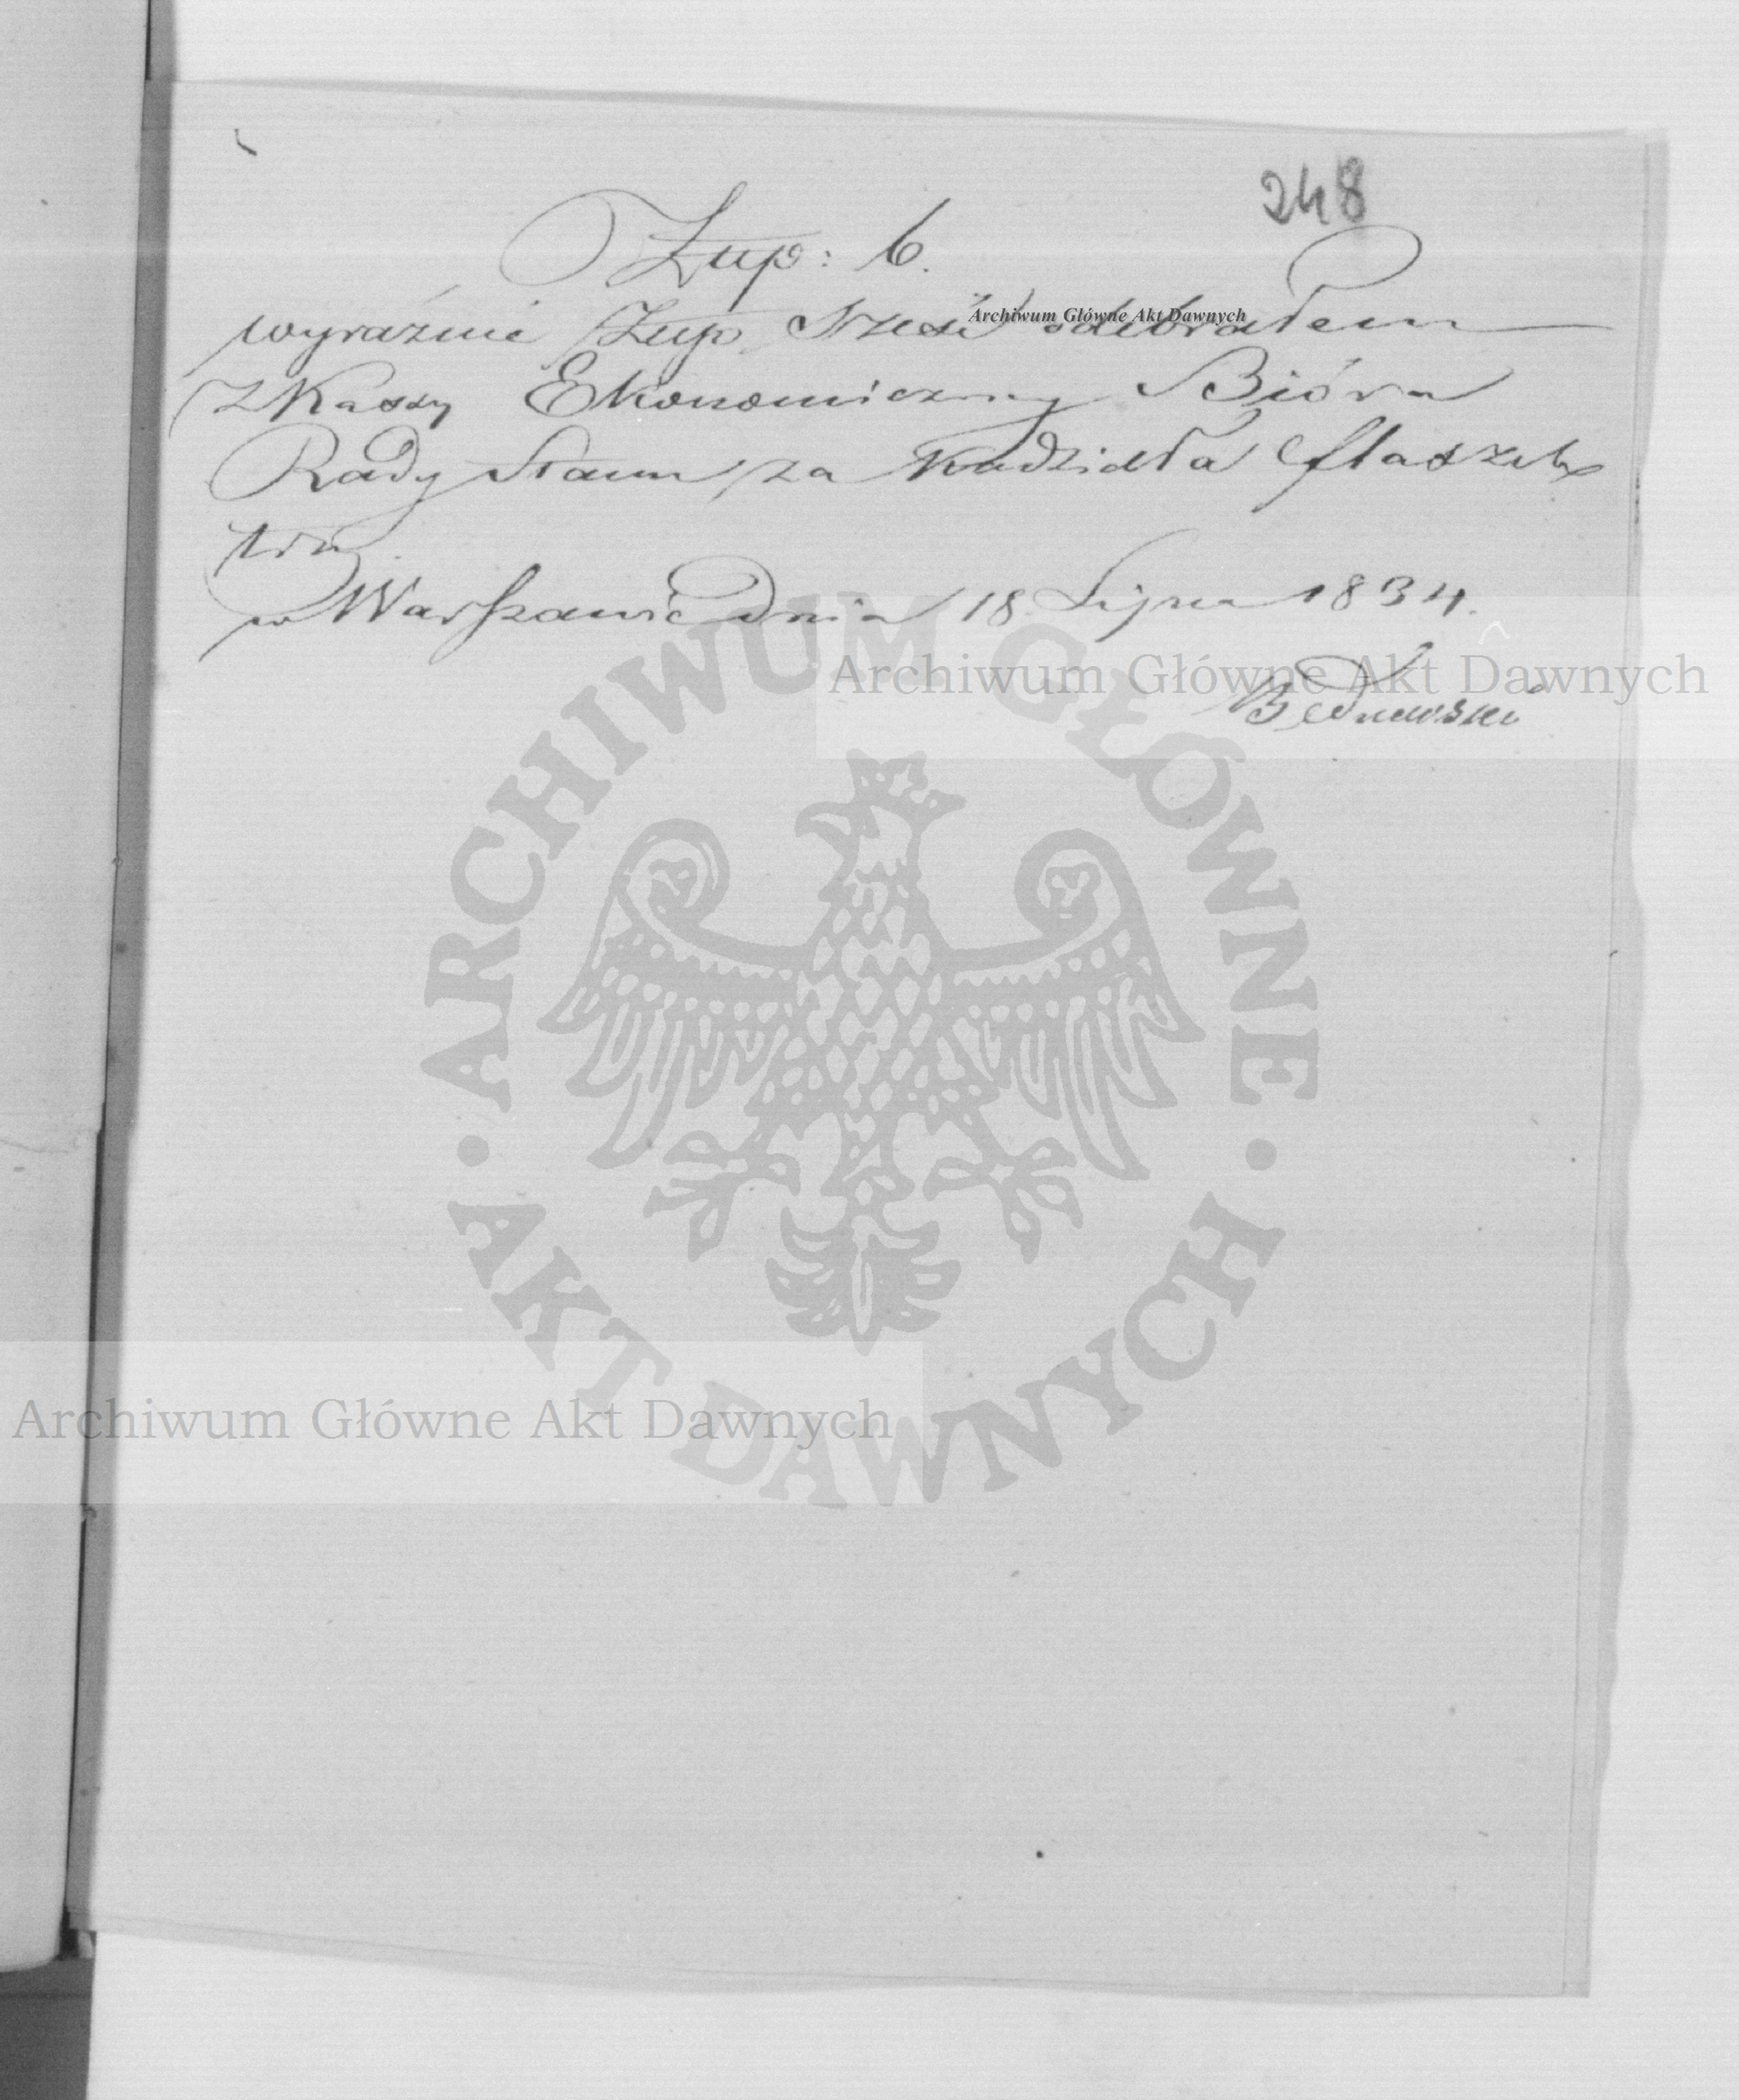 248
Złip: 6.
wyraźnie Złip. Sześć odebrałem
z Kassy Ekonomiczny Bióra
Rady Stanu za Kadzidła flaszek
trzy.
w Warszawie dnia 18 Lipca 1834.
Bednawski
Archiwum Główne Akt Dawnych
Archiwum Główne Akt Dawnych
ARCHIWUM GŁÓWNE
· AKT DAWNYCH ·
Archiwum Główne Akt Dawnych